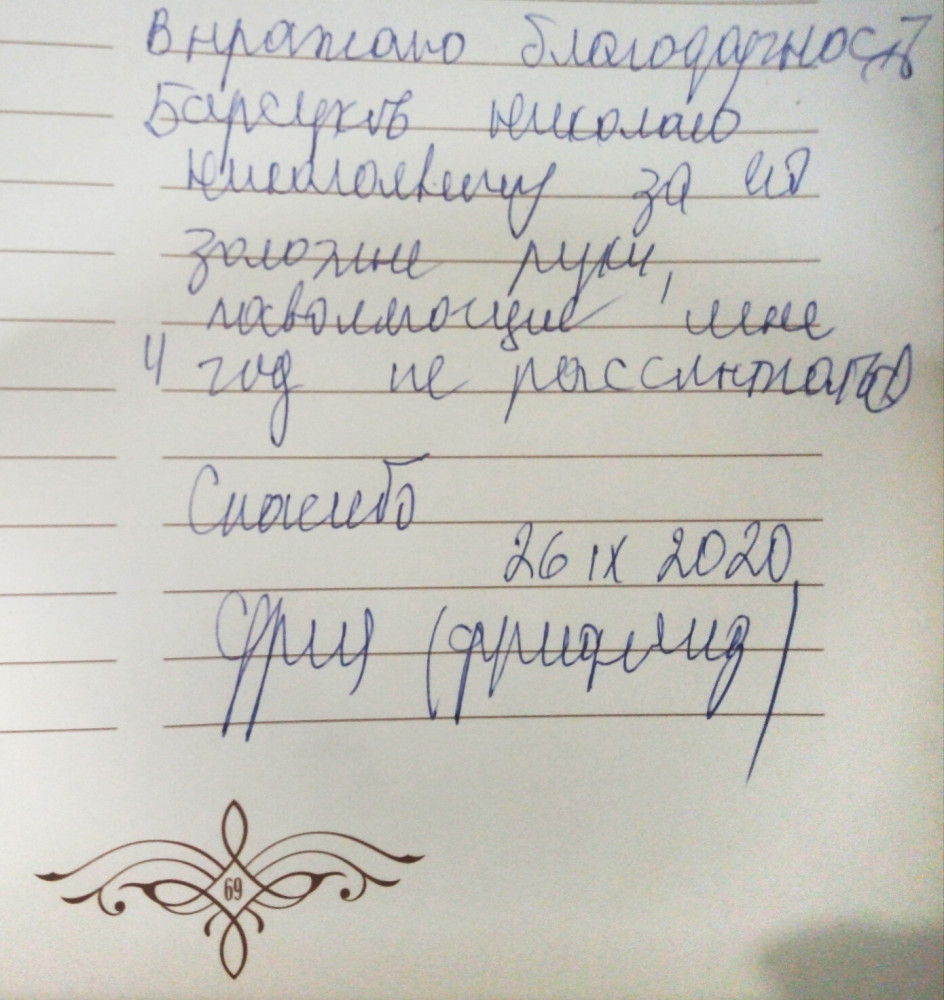 Выражаю благодарность
Барсуков Николаю
Николаевичу за его
золотые руки,
позволяющие мне
4 год не рассыпаться
Спасибо
26 IX 2020
Фрид (Фридлянд)
69